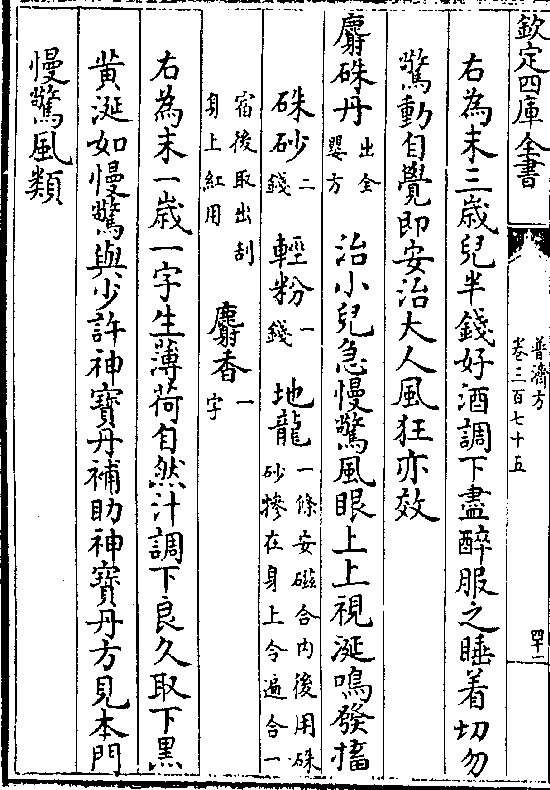 欽定四庫全書
普濟方
卷三百七十五
四十二
右為末三歲兒半錢好酒調下盡醉服之睡着切勿
驚動自覺即安治大人風狂亦效
麝硃丹 出全嬰方 治小兒急慢驚風眼上上視涎鳴發搐
硃砂 二錢 輕粉 一錢 地龍 一條安磁合內後用硃砂摻在身上令遍合一
宿後取出刮身上紅用 麝香 一字
右為末一歲一字生薄荷自然汁調下良久取下黑
黃涎如慢驚與少許神寶丹補助神寶丹方見本門
慢驚風類